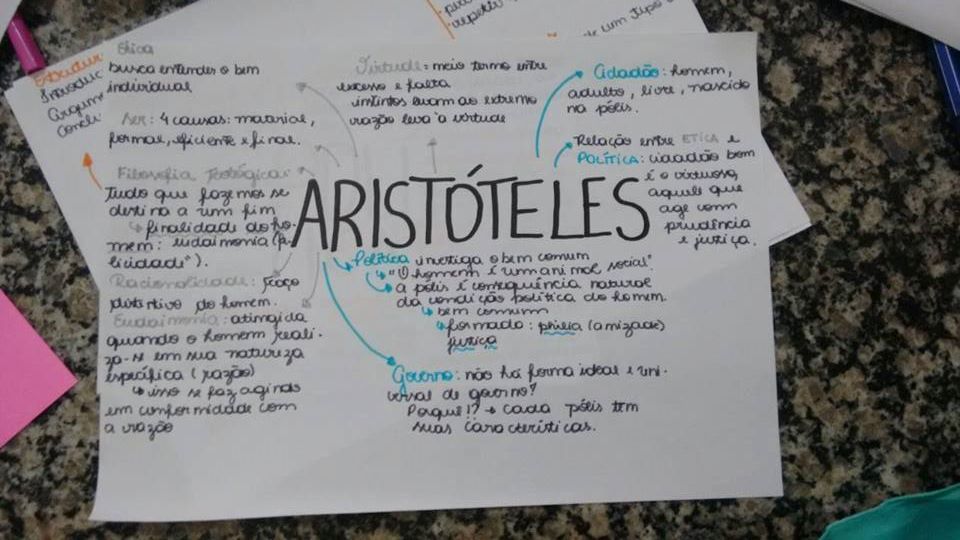 Ética
busca entender o bem
individual
Ser: 4 causas: material,
formal, eficiente e final.
Filosofia Teológica:
Tudo que fazemos se
destina a um fim
↳ finalidade do ho-
mem: eudaimonia (fe-
licidade").
Racionalidade: traço
distintivo do homem.
Eudaimonia: atingida
quando o homem reali-
za-se em sua natureza
específica (razão)
↳ isso se faz agindo
em conformidade com
a razão
Virtude = meio termo entre
excesso e falta
instintos levam ao extremo
razão leva à virtude
Cidadão: homem,
adulto, livre, nascido
na pólis.
Relação entre ETICA e
POLÍTICA: cidadão bom
é o virtuoso,
aquele que
age com
prudência
e justiça.
ARISTÓTELES
↳ Política investiga o bem comum
↳ "O homem é um animal social"
↳ a pólis é consequência natural
da condição política do homem.
↳ bem comum
↳ formado: philia (amizade)
justiça
Governo: não há forma ideal e uni-
versal de governo?
Porque!? → cada pólis tem
suas características.
Estrutur
Introduc
Argum
conclu
repetir
de um tipo